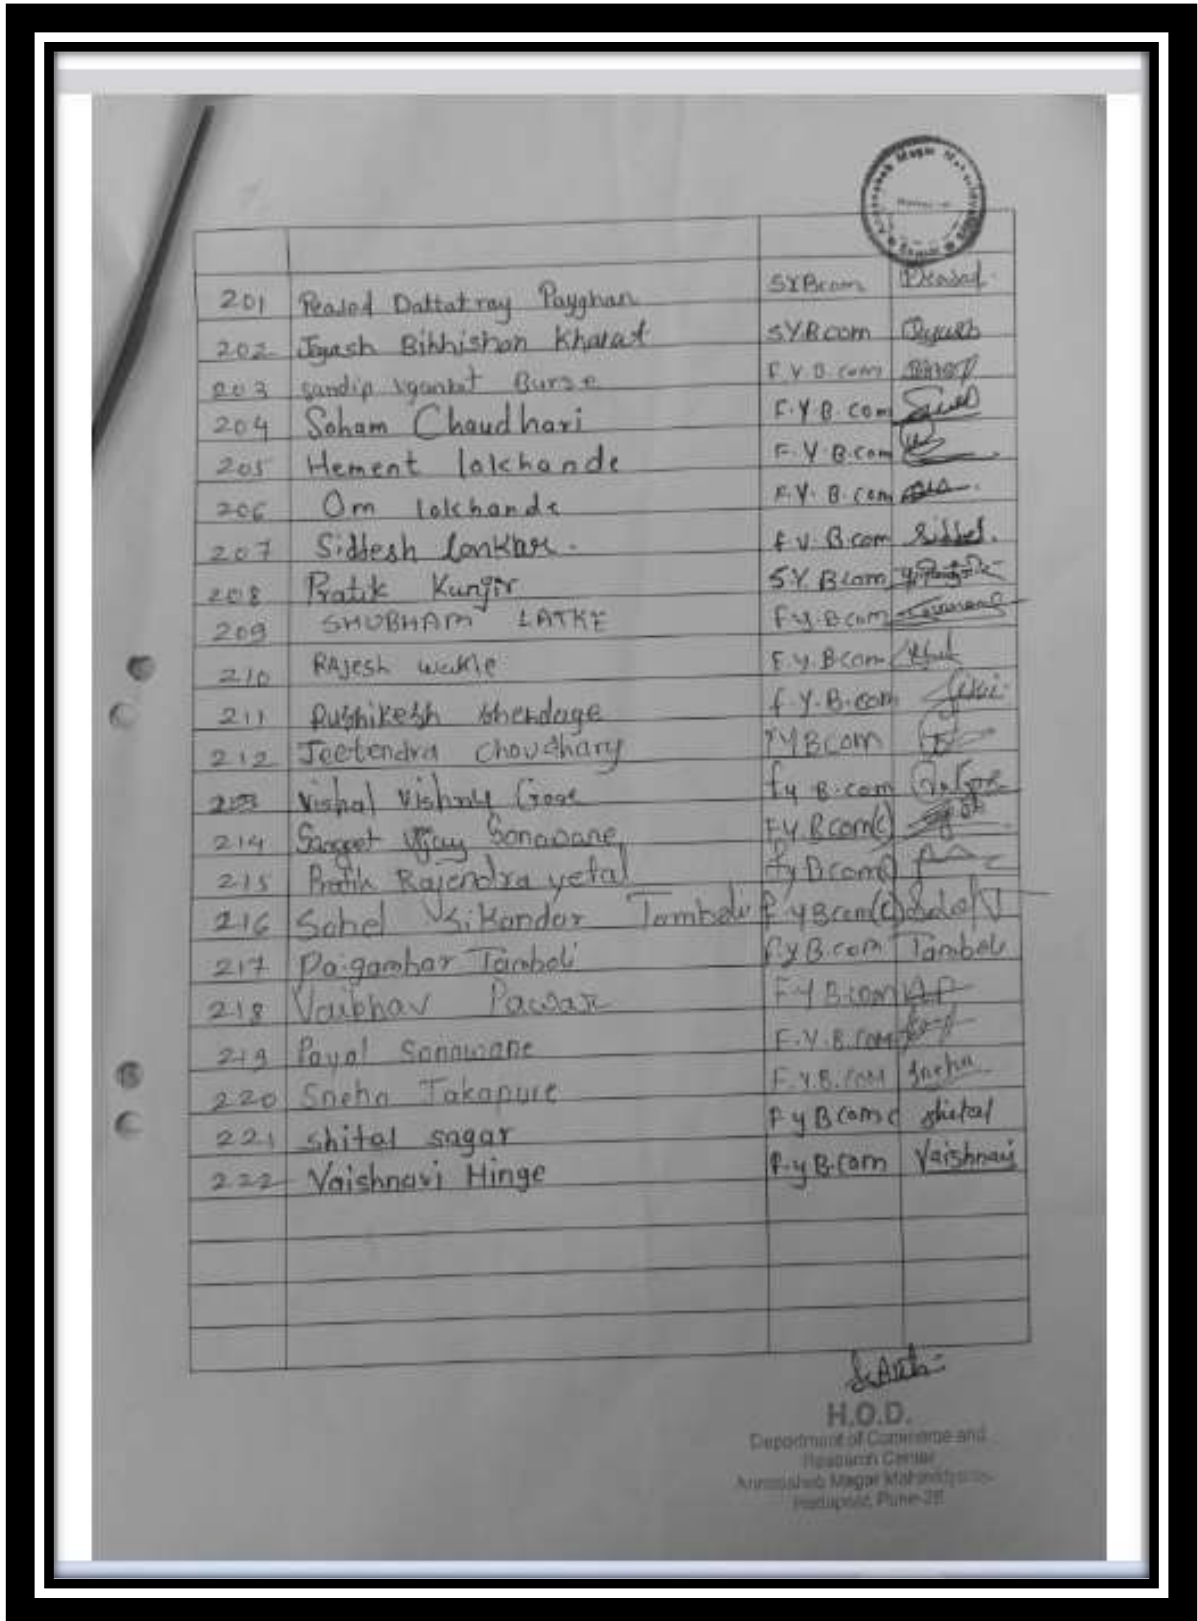 Annasaheb Magar
201 Peasad Dattatray Payghan SYBcom Prasad
202 Jgyash Bibhishan Kharat S.Y.B.com
203 Sandip Burse F.Y.B.com
204 Soham Chaudhari F.Y.B. Com
205 Hement lolchande F.Y.B.com
206 Om lolchande F.Y. B.com
207 Siddesh lonkar. f.y. B.com Siddesh.
208 Pratik Kunjir S.Y. Bcom
209 SHUBHAM LATKE F.y.Bcom
210 RAjesh wakle F.y.Bcom
211 Rushikesh Shendage f.y.B.com
212 Jeetendra Choudhary FYBcom
213 Vishal Vishnu Gore fy B.com
214 Vijay Sonawane F.Y.Bcom(c)
215 Pratik Rajendra yetal fyBcom
216 Sohel Sikandar Tamboli f.yBcom(c)
217 Paigambar Tamboli F.yB.com Tamboli
218 Vaibhav Pawar FYB.com A.P.
219 Payal Sonawane F.Y.B.com
220 Sneha Takapure F.Y.B.com Sneha
221 shital sagar F y Bcom c shital
222 Vaishnavi Hinge F.yB.com Vaishnavi
H.O.D.
Department of Commerce and
Research Center
Annasaheb Magar Mahavidyalaya
Hadapsar, Pune-28